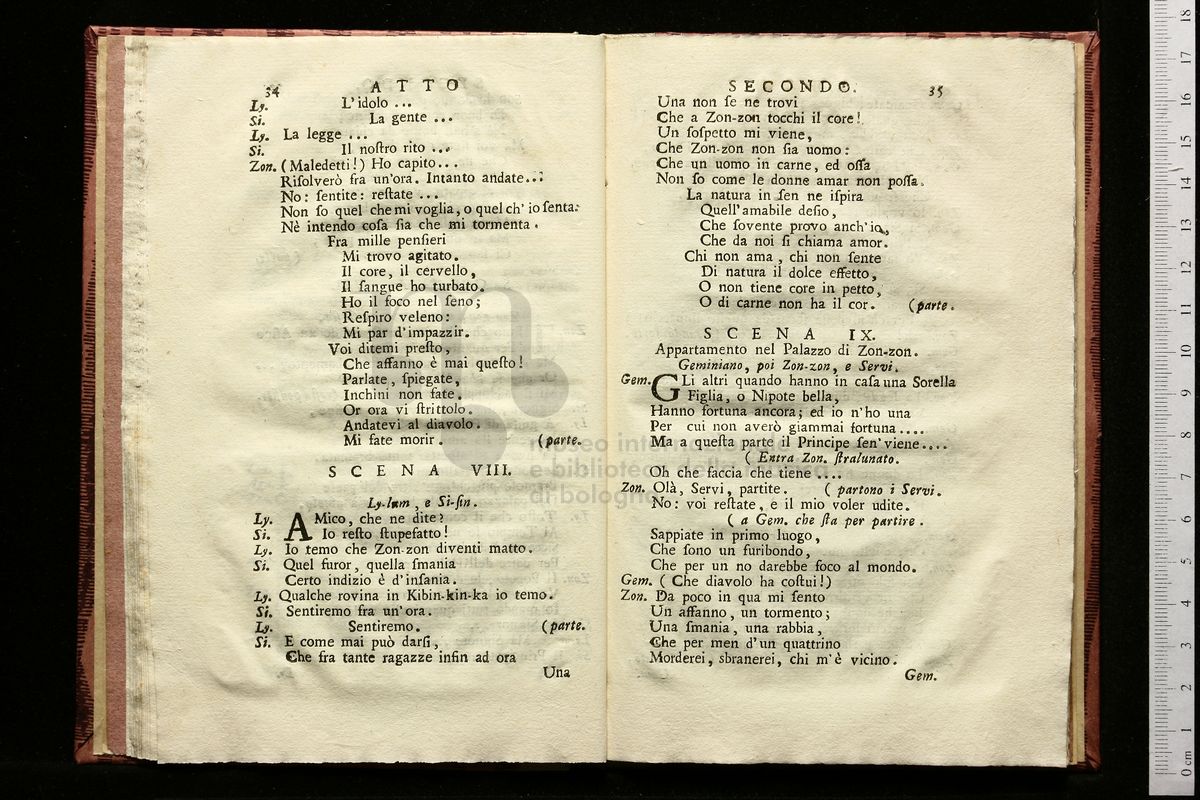 34 ATTO
Ly. L'idolo ...
Si. La gente ...
Ly. La legge ...
Si. Il noſtro rito ...
Zon. (Maledetti!) Ho capito...
Riſolverò fra un'ora. Intanto andate...
No: ſentite: reſtate ...
Non ſo quel che mi voglia, o quel ch' io ſenta:
Nè intendo coſa ſia che mi tormenta.
Fra mille penſieri
Mi trovo agitato.
Il core, il cervello,
Il ſangue ho turbato.
Ho il foco nel ſeno;
Reſpiro veleno:
Mi par d'impazzir.
Voi ditemi preſto,
Che affanno è mai queſto!
Parlate, ſpiegate,
Inchini non fate.
Or ora vi ſtrittolo.
Andatevi al diavolo.
Mi fate morir. (parte.
SCENA VIII.
Ly-lum, e Si-ſin.
Ly. AMico, che ne dite?
Si. Io reſto ſtupefatto!
Ly. Io temo che Zon-zon diventi matto.
Si. Quel furor, quella ſmania
Certo indizio è d'inſania.
Ly. Qualche rovina in Kibin-kin-ka io temo.
Si. Sentiremo fra un'ora.
Ly. Sentiremo. (parte.
Si. E come mai può darſi,
Che fra tante ragazze infin ad ora
Una
SECONDO. 35
Una non ſe ne trovi
Che a Zon-zon tocchi il core!
Un ſoſpetto mi viene,
Che Zon-zon non ſia uomo:
Che un uomo in carne, ed oſſa
Non ſo come le donne amar non poſſa.
La natura in ſen ne iſpira
Quell'amabile deſio,
Che ſovente provo anch'io,
Che da noi ſi chiama amor.
Chi non ama, chi non ſente
Di natura il dolce effetto,
O non tiene core in petto,
O di carne non ha il cor. (parte.
SCENA IX.
Appartamento nel Palazzo di Zon-zon.
Geminiano, poi Zon-zon, e Servi.
Gem. GLi altri quando hanno in caſa una Sorella
Figlia, o Nipote bella,
Hanno fortuna ancora; ed io n'ho una
Per cui non averò giammai fortuna....
Ma a queſta parte il Principe ſen'viene....
(Entra Zon. ſtralunato.
Oh che faccia che tiene ....
Zon. Olà, Servi, partite. (partono i Servi.
No: voi reſtate, e il mio voler udite.
(a Gem. che ſta per partire.
Sappiate in primo luogo,
Che ſono un furibondo,
Che per un no darebbe foco al mondo.
Gem. (Che diavolo ha coſtui!)
Zon. Da poco in qua mi ſento
Un affanno, un tormento;
Una ſmania, una rabbia,
Che per men d'un quattrino
Morderei, sbranerei, chi m'è vicino.
Gem.
museo inte
e biblioteca della musica
di bologna
0 cm 1 2 3 4 5 6 7 8 9 10 11 12 13 14 15 16 17 18